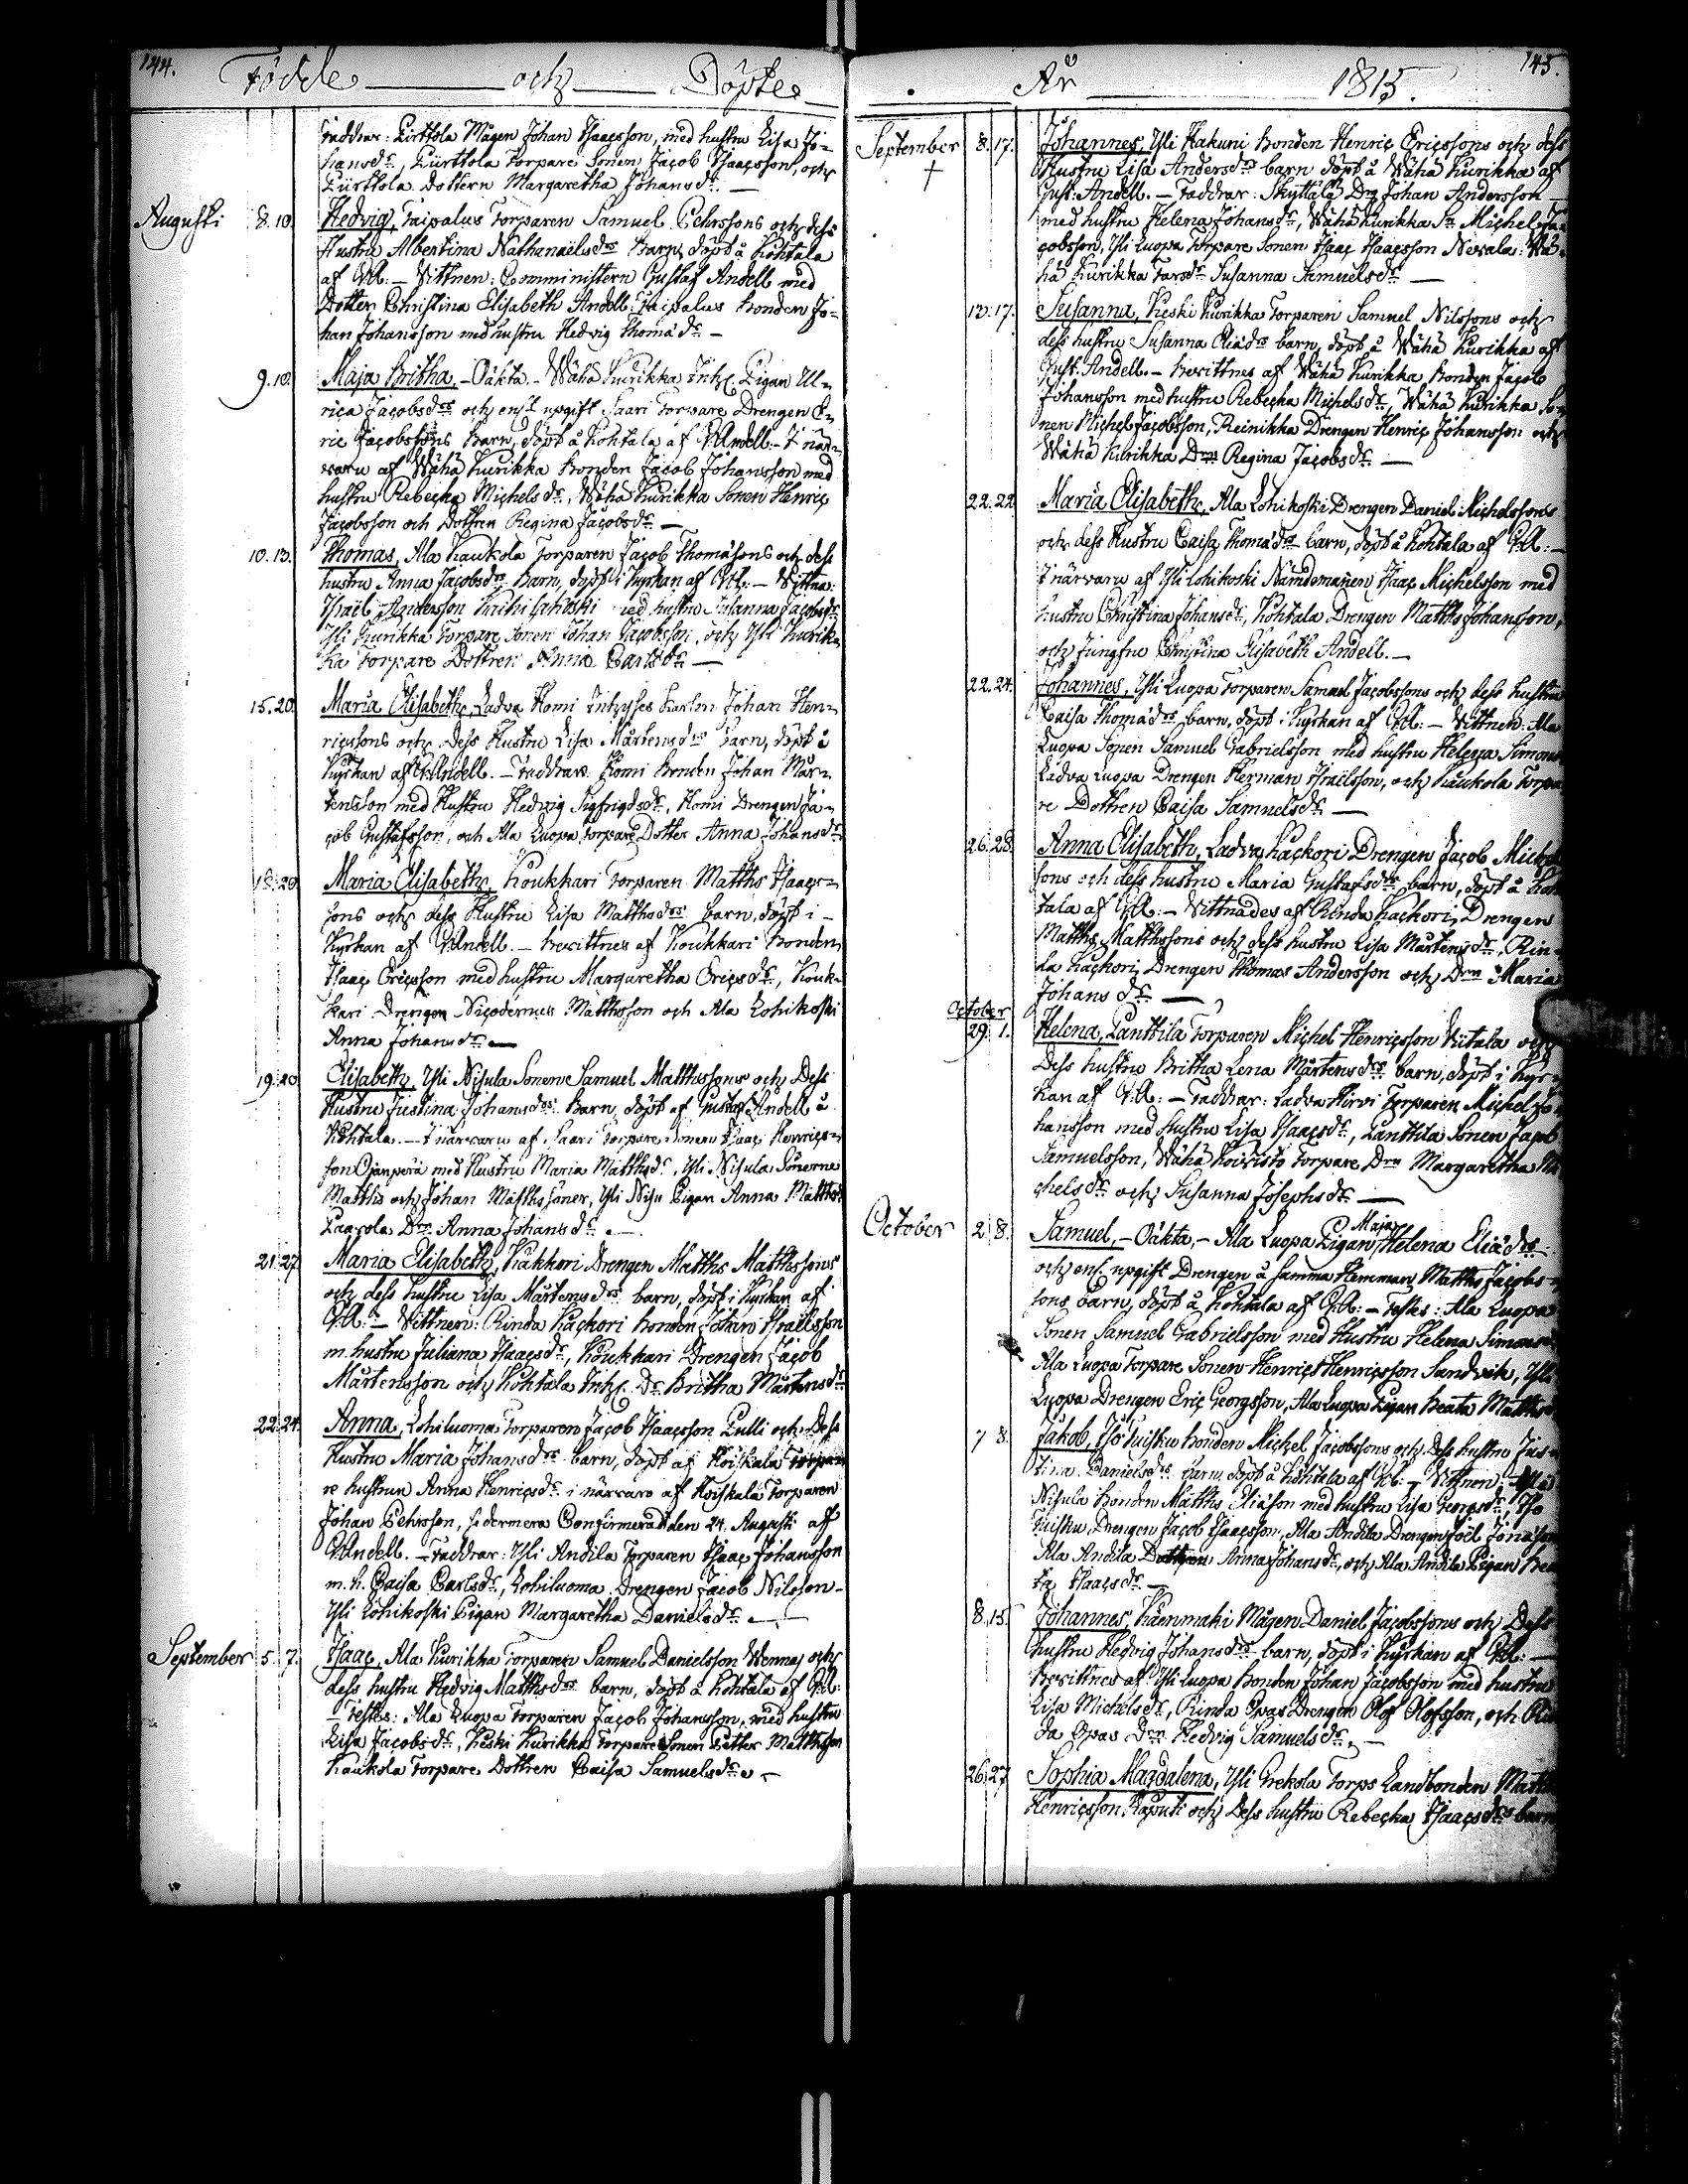 144.
Födde och Döpte
faddrar: Pirttola Mågen Johan Isaacsson, med hustru Lisa Jo-
hansdr, Pirttola Torpare Sonen Jacob Isaacsson, och
Pirttola Dottern Margaretha Johansdr. —
Augusti 8. 10. Hedvig, Taipalus Torparen Samuel Pehrssons och dess
Hustru Albertina Nathanaëlsdrs Barn, döpt å Kohtala
af G:A: — Vittnen: Comministern Gustaf Andell med
Dotter Christina Elisabeth Andell: Taipalus Bonden Jo-
han Johansson med hustru Hedvig Thomædr. —
9. 10. Maja Britha, — Oäkta. — Wähä Kurikka Inh. Pigan Ul-
rica Jacobsdrs och enl. upgift Saari Torpare Drengen E-
ric Jacobssons Barn, döpt å Kohtala af G:Andell. — I när-
varo af Wähä Kurikka Bonden Jacob Johansson med
hustru Rebecka Michelsdr, Wähä Kurikka Sonen Henric
Jacobsson och Dottren Regina Jacobsdr. —
10. 13. Thomas, Ala Kaukola Torparen Jacob Thomæsons och dess
hustru Anna Jacobsdrs Barn, döpt i Kyrkan af G:A: — Vittna:
Israël Andersson med hustru Susanna Jacobsdr
Yli Kurikka Torpare Sonen Johan Jacobsson, och Yli Kurik-
ka Torpare Dottren Anna Carlsdr. —
15. 20. Maria Elisabeth, Ladva Homi Inhyses Karlen Johan Hen-
ricssons och Dess Hustru Lisa Mårtensdrs barn, döpt i
Kyrkan af G:Andell. — Faddrar. Homi Bonden Johan Mår-
tensson med Hustru Hedvig Sigfridsdr, Homi Drengen Ja-
cob Gustafsson, och Ala Luopa Torpare Dotter Anna Johansdr
18. 20. Maria Elisabeth, Koukkari Torparen Matths Isaacs-
sons och dess Hustru Lisa Matthsdrs barn, döpt i -
Kyrkan af G:Andell. — bevittnes af Koukkari Bonden
Isaac Ericsson med hustru Margaretha Ericsdr, Kouk-
kari Drengen Nicodemus Matthsson och Ala Lohikoski
Anna Johansdr —
19. 20. Elisabeth, Yli Nisula Sonen Samuel Matthssons och Dess
Hustru Justina Johansdrs Barn, döpt af Gustaf Andell å
Kohtala. — I närvaro af Saari Torpare Sonen Isaac Henrics-
son Ojanperä med Hustru Maria Matthsdr, Yli Nisula Sönerne
Matths och Johan Matths söner, Yli Nisu Pigan Anna Matthsdr
Drn Anna Johansdr. —
21. 27. Maria Elisabeth, Käkkori Drengen Matths Matthssons
och dess hustru Lisa Mårtensdrs barn, döpt i Kyrkan af
G:A: — Vittnen: Rinda Kackori Bonden Johan Israëlsson
m. hustru Juliana Isaacsdr, Koukkari Drengen Jacob
Mårtensson och Kohtala Inh. Dr Britha Mårtensdr
22. 24. Anna, Lohiluoma Torparen Jacob Isaacsson Pulli och Dess
Hustru Maria Johansdrs barn, döpt af Koiskala Torpa-
re hustrun Anna Henricsdr i närvaro af Koiskala Torparen
Johan Pehrsson, sedermera Confirmerad den 24. Augusti af
G:Andell. — Faddrar: Yli Andila Torparen Isaac Johansson
m. h. Caisa Carlsdr, Lohiluoma Drengen Jacob Nilsson -
Yli Lohikoski Pigan Margaretha Danielsdr. —
September 5. 7. Isaac, Ala Kurikka Torparen Samuel Danielsson Wenna, och
dess hustru Hedvig Matthsdrs barn, döpt å Kohtala af G:A:
Testes: Ala Luopa Torparen Jacob Johansson, med hustru
Lisa Jacobsdr, Keski Kurikka Torpare Sonen Petter Matthsson
Kaukola Torpare Dottren Caisa Samuelsdr. —
År 1815. 145.
September 8. 17. Johannes, Yli Kakuri Bonden Henric Ericssons och dess
† Hustru Lisa Andersdrs barn döpt å Wähä Kurikka af
Gust. Andell. — Faddrar: Skyttälä Drn Johan Andersson
med hustru Helena Johansdr, Wähä Kurikka Sn Michel Ja-
cobsson, Yli Luopa Torpare Sonen Isaac Isaacsson Nevala: Wä-
hä Kurikka Torsdr Susanna Samuelsdr —
13. 17. Susanna, Keski Kurikka Torparen Samuel Nilssons och
dess hustru Susanna Eliædrs barn, döpt å Wähä Kurikka af
Gust. Andell. — bevittnes af Wähä Kurikka Bonden Jacob
Johansson med hustru Rebecka Michelsdr, Wähä Kurikka So-
nen Michel Jacobsson, Reinikka Drengen Henric Johansson och
Wähä Kurikka Drn Regina Jacobsdr. —
22. 22. Maria Elisabeth, Ala Lohikoski Drengen Daniel Michelssons
och dess Hustru Caisa Thomædrs barn, döpt å Kohtala af G:A: —
I närvaro af Yli Lohikoski Nämdemannen Isaac Michelsson med
hustru Christina Johansdr, Kohtala Drengen Matths Johansson,
och Jungfru Christina Elisabeth Andell. —
22. 24. Johannes, Yli Luopa Torparen Samuel Jacobssons och dess hustru
Caisa Thomædrs barn, döpt i Kyrkan af G:A: — Vittnen: Ala
Luopa Sonen Samuel Gabrielsson med hustru Helena Simons
Ladva Luopa Drengen Herman Israëlsson, och Kaukola Torpa-
re Dottren Caisa Samuelsdr. —
26. 28. Anna Elisabeth, Ladva Kackori Drengen Jacob Michel
sons och dess hustru Maria Gustafsdrs barn, döpt å Koh-
tala af G:A: — Vittnades af Rinda Kackori Drengen
Matths Matthssons och dess hustru Lisa Mårtensdr, Rin-
da Kackori Drengen Thomas Andersson och Drn Maria
Johansdr —
October
29. 1. Helena, Lanttila Torparen Michel Henricsson Viitala och
Dess hustru Britha Lena Mårtensdrs barn, döpt i Kyr-
kan af G:A: — Faddrar: Ladva Hirvi Torparen Michel Jo-
hansson med hustru Lisa Isaacsdr, Lanttila Sonen Jacob
Samuelsson, Wähä Koivisto Torpare Drn Margaretha Mi-
chelsdr och Susanna Josephsdr —
October 2. 8. Samuel, — Oäkta, — Ala Luopa Pigan Maja Helena Eliædrs
och enl. upgift Drengen å samma Hemman Matths Jacobs-
sons barn, döpt å Kohtala af G:A: — Testes: Ala Luopa
Sonen Samuel Gabrielsson med Hustru Helena Simonsdr
Ala Luopa Torpare Sonen Henric Henricsson Sandvik, Yli
Luopa Drengen Eric Georgsson, Ala Luopa Pigan Beata Matthsdr
7 8. Jakob, Iso Tuisku Bonden Michel Jacobssons och dess hustru Jus-
tina Danielsdrs barn, döpt å Kohtala af G:A: — Vittnen: Ala
Nisula Bonden Matths Eliæson med hustru Lisa Georgsdr, Iso
Tuisku Drengen Jacob Isaacsson, Ala Andila Drengen Joël Jonæson
Ala Andila Dottren Anna Johansdr, och Ala Andila Pigan Brea
ta Isaacsdr —
8. 15. Johannes, Kammaki Mågen Daniel Jacobssons och Dess
hustru Hedvig Johansdrs barn, döpt i Kyrkan af G:A: —
bevittnes af Yli Luopa Bonden Johan Jacobsson med hustru
Lisa Michelsdr, Rinda Opas Drengen Olof Olofsson, och Rin
da Opas Drn Hedvig Samuelsdr. —
26. 27 Sophia Magdalena, Yli Grekola Torps Landbonden Matths
Henricsson Raputi och Dess hustru Rebecka Isaacsdrs barn